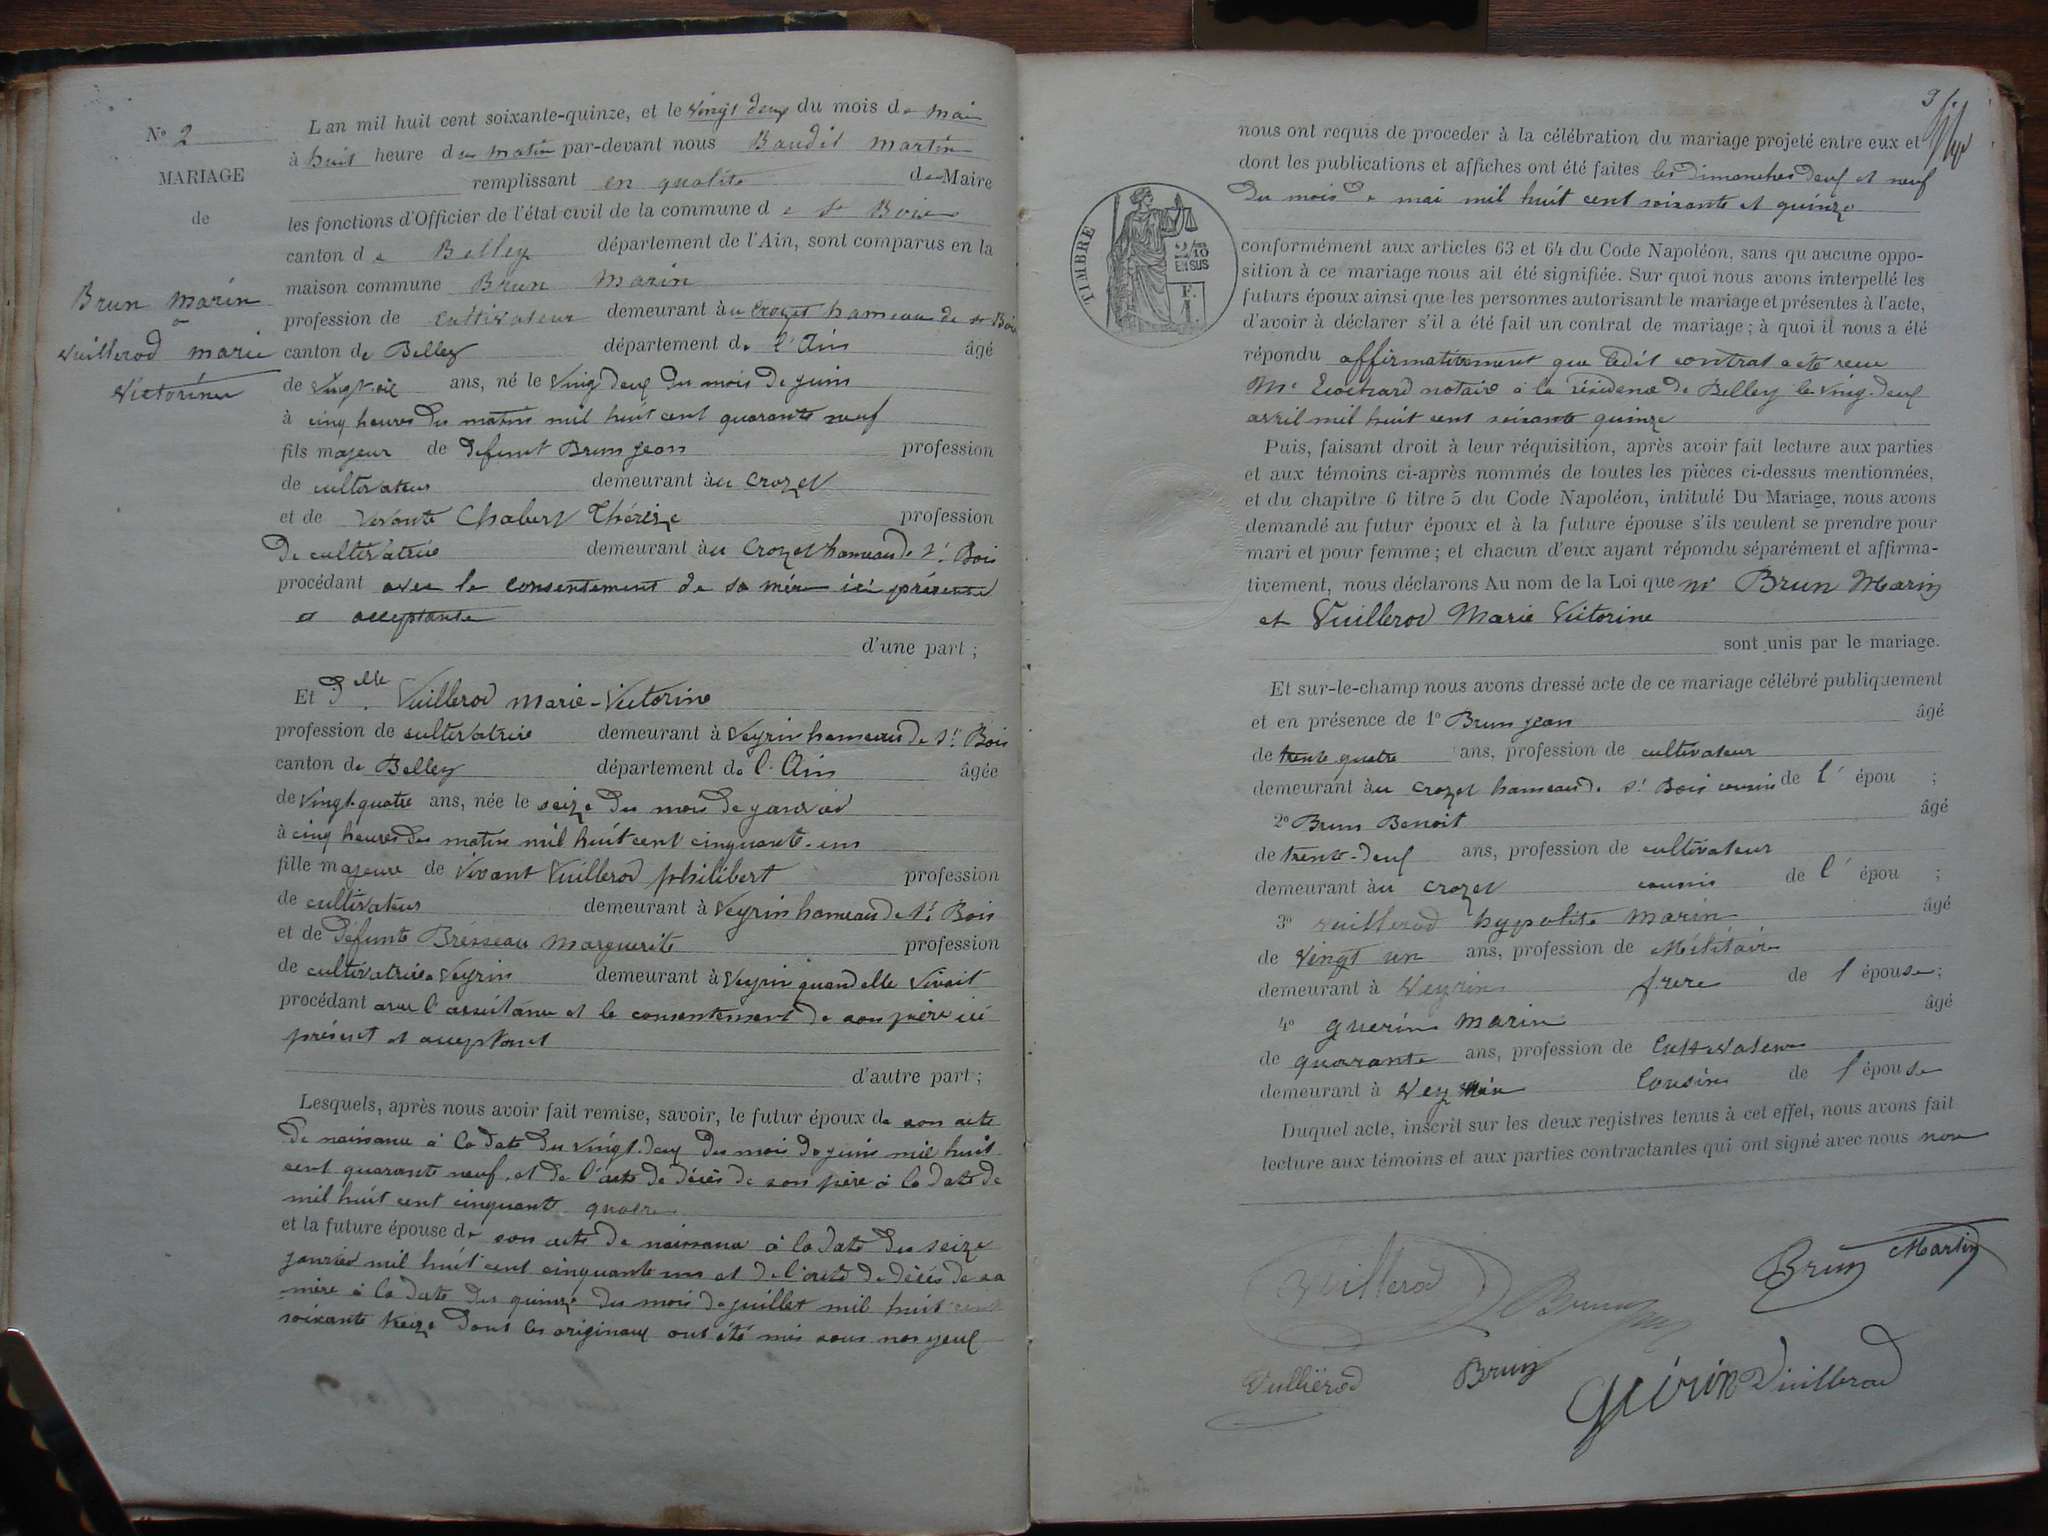 N° 2
MARIAGE
de
Brun Marin
&
Vuillerod Marie
Victorine
L an mil huit cent soixante-quinze, et le vingt deux du mois de mai
à huit heure du matin par-devant nous Baudit Martin
remplissant en qualité de Maire
les fonctions d'Officier de l'état civil de la commune d e St Bois
canton d e Belley département de l'Ain, sont comparus en la
maison commune Brun Marin
profession de cultivateur demeurant àu Crozet hameau de St Bois
canton de Belley département de l'Ain âgé
de vingt six ans, né le ving deux du mois de juin
à cinq heures du matin mil huit cent quarante neuf
fils majeur de defunt Brun Jean profession
de cultivateur demeurant àu Crozet
et de vivante Chabert Thérèze profession
De cultivatrice demeurant àu Crozet hameau de St. Bois
procédant avec le consentement de sa mère ici présente
et acceptante
d'une part ;
Et Delle. Vuillerod Marie-Victorine
profession de cultivatrice demeurant à Veyrin hameau de St. Bois
canton de Belley département de l'Ain âgée
de vingt-quatre ans, née le seize du mois de janvier
à cinq heures du matin mil huit cent cinquante-un
fille majeure de vivant Vuillerod philibert profession
de cultivateur demeurant à Veyrin hameau de St. Bois
et de défunte Marguerite profession
de cultivatrice a Veyrin demeurant à Veyrin quand elle vivait
procédant avec l'assistance et le consentement de son père ici
présent et acceptant
d'autre part ;
Lesquels, après nous avoir fait remise, savoir, le futur époux de son acte
de naissance à la date du vingt-deux du mois de juin mil huit
cent quarante neuf, et de l'acte de décès de son père à la date de
mil huit cent cinquante quatre
et la future épouse de son acte de naissance à la date du seize
janvier mil huit cent cinquante un et de l'acte de décès de sa
mère à la date du quinze du mois de juillet mil huit cent
soixante treize dont les originaux ont été mis sous nos yeux
nous ont requis de proceder à la célébration du mariage projeté entre eux et
dont les publications et affiches ont été faites les dimanches deux et neuf
du mois de mai mil huit cent soixante et quinze
TIMBRE
2/10
EN SUS
conformément aux articles 63 et 64 du Code Napoléon, sans qu aucune oppo-
sition à ce mariage nous ait été signifiée. Sur quoi nous avons interpellé les
futurs époux ainsi que les personnes autorisant le mariage et présentes à l'acte,
d'avoir à déclarer s'il a été fait un contrat de mariage ; à quoi il nous a été
répondu affirmativement que ledit contrat a été reçu
Me notaire à la résidence de Belley le ving-deux
avril mil huit cent soixante quinze
Puis, faisant droit à leur réquisition, après avoir fait lecture aux parties
et aux témoins ci-après nommés de toutes les pièces ci-dessus mentionnées,
et du chapitre 6 titre 5 du Code Napoléon, intitulé Du Mariage, nous avons
demandé au futur époux et à la future épouse s'ils veulent se prendre pour
mari et pour femme ; et chacun d'eux ayant répondu séparément et affirma-
tivement, nous déclarons Au nom de la Loi que Mr Brun Marin
et Vuillerod Marie Victorine
sont unis par le mariage.
Et sur-le-champ nous avons dressé acte de ce mariage célébré publiquement
et en présence de 1° Brun Jean âgé
de trente quatre ans, profession de cultivateur
demeurant àu Crozet hameau de St Bois cousin de l' épou ;
2° Brun Benoit âgé
de trente-deux ans, profession de cultivateur
demeurant àu Crozet cousin de l' épou ;
3° Vuillerod hypolite Marin âgé
de vingt un ans, profession de Militaire
demeurant à Veyrin frere de l épouse ;
4° guerin Marin âgé
de quarante ans, profession de Cultivateur
demeurant à Veyrin Cousin de l épouse
Duquel acte, inscrit sur les deux registres tenus à cet effet, nous avons fait
lecture aux témoins et aux parties contractantes qui ont signé avec nous non
Vuillerod Brun Brun Martin
Vuilliérod Brun Guérin Vuillerod